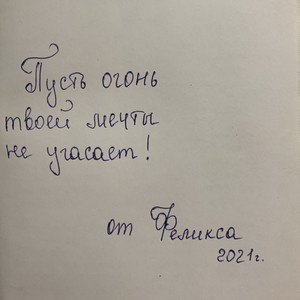 Пусть огонь
твоей мечты
не угасает!
от Феликса
2021г.